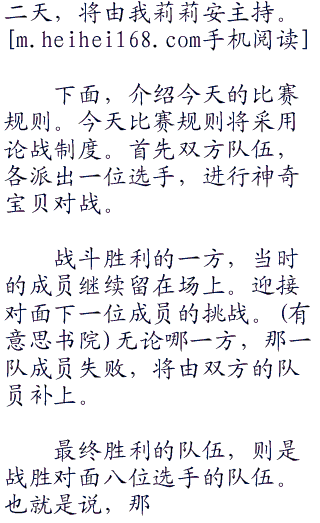 二天，将由我莉莉安主持。
[m.heihei168.com手机阅读]
下面，介绍今天的比赛
规则。今天比赛规则将采用
论战制度。首先双方队伍，
各派出一位选手，进行神奇
宝贝对战。
战斗胜利的一方，当时
的成员继续留在场上。迎接
对面下一位成员的挑战。(有
意思书院)无论哪一方，那一
队成员失败，将由双方的队
员补上。
最终胜利的队伍，则是
战胜对面八位选手的队伍。
也就是说，那